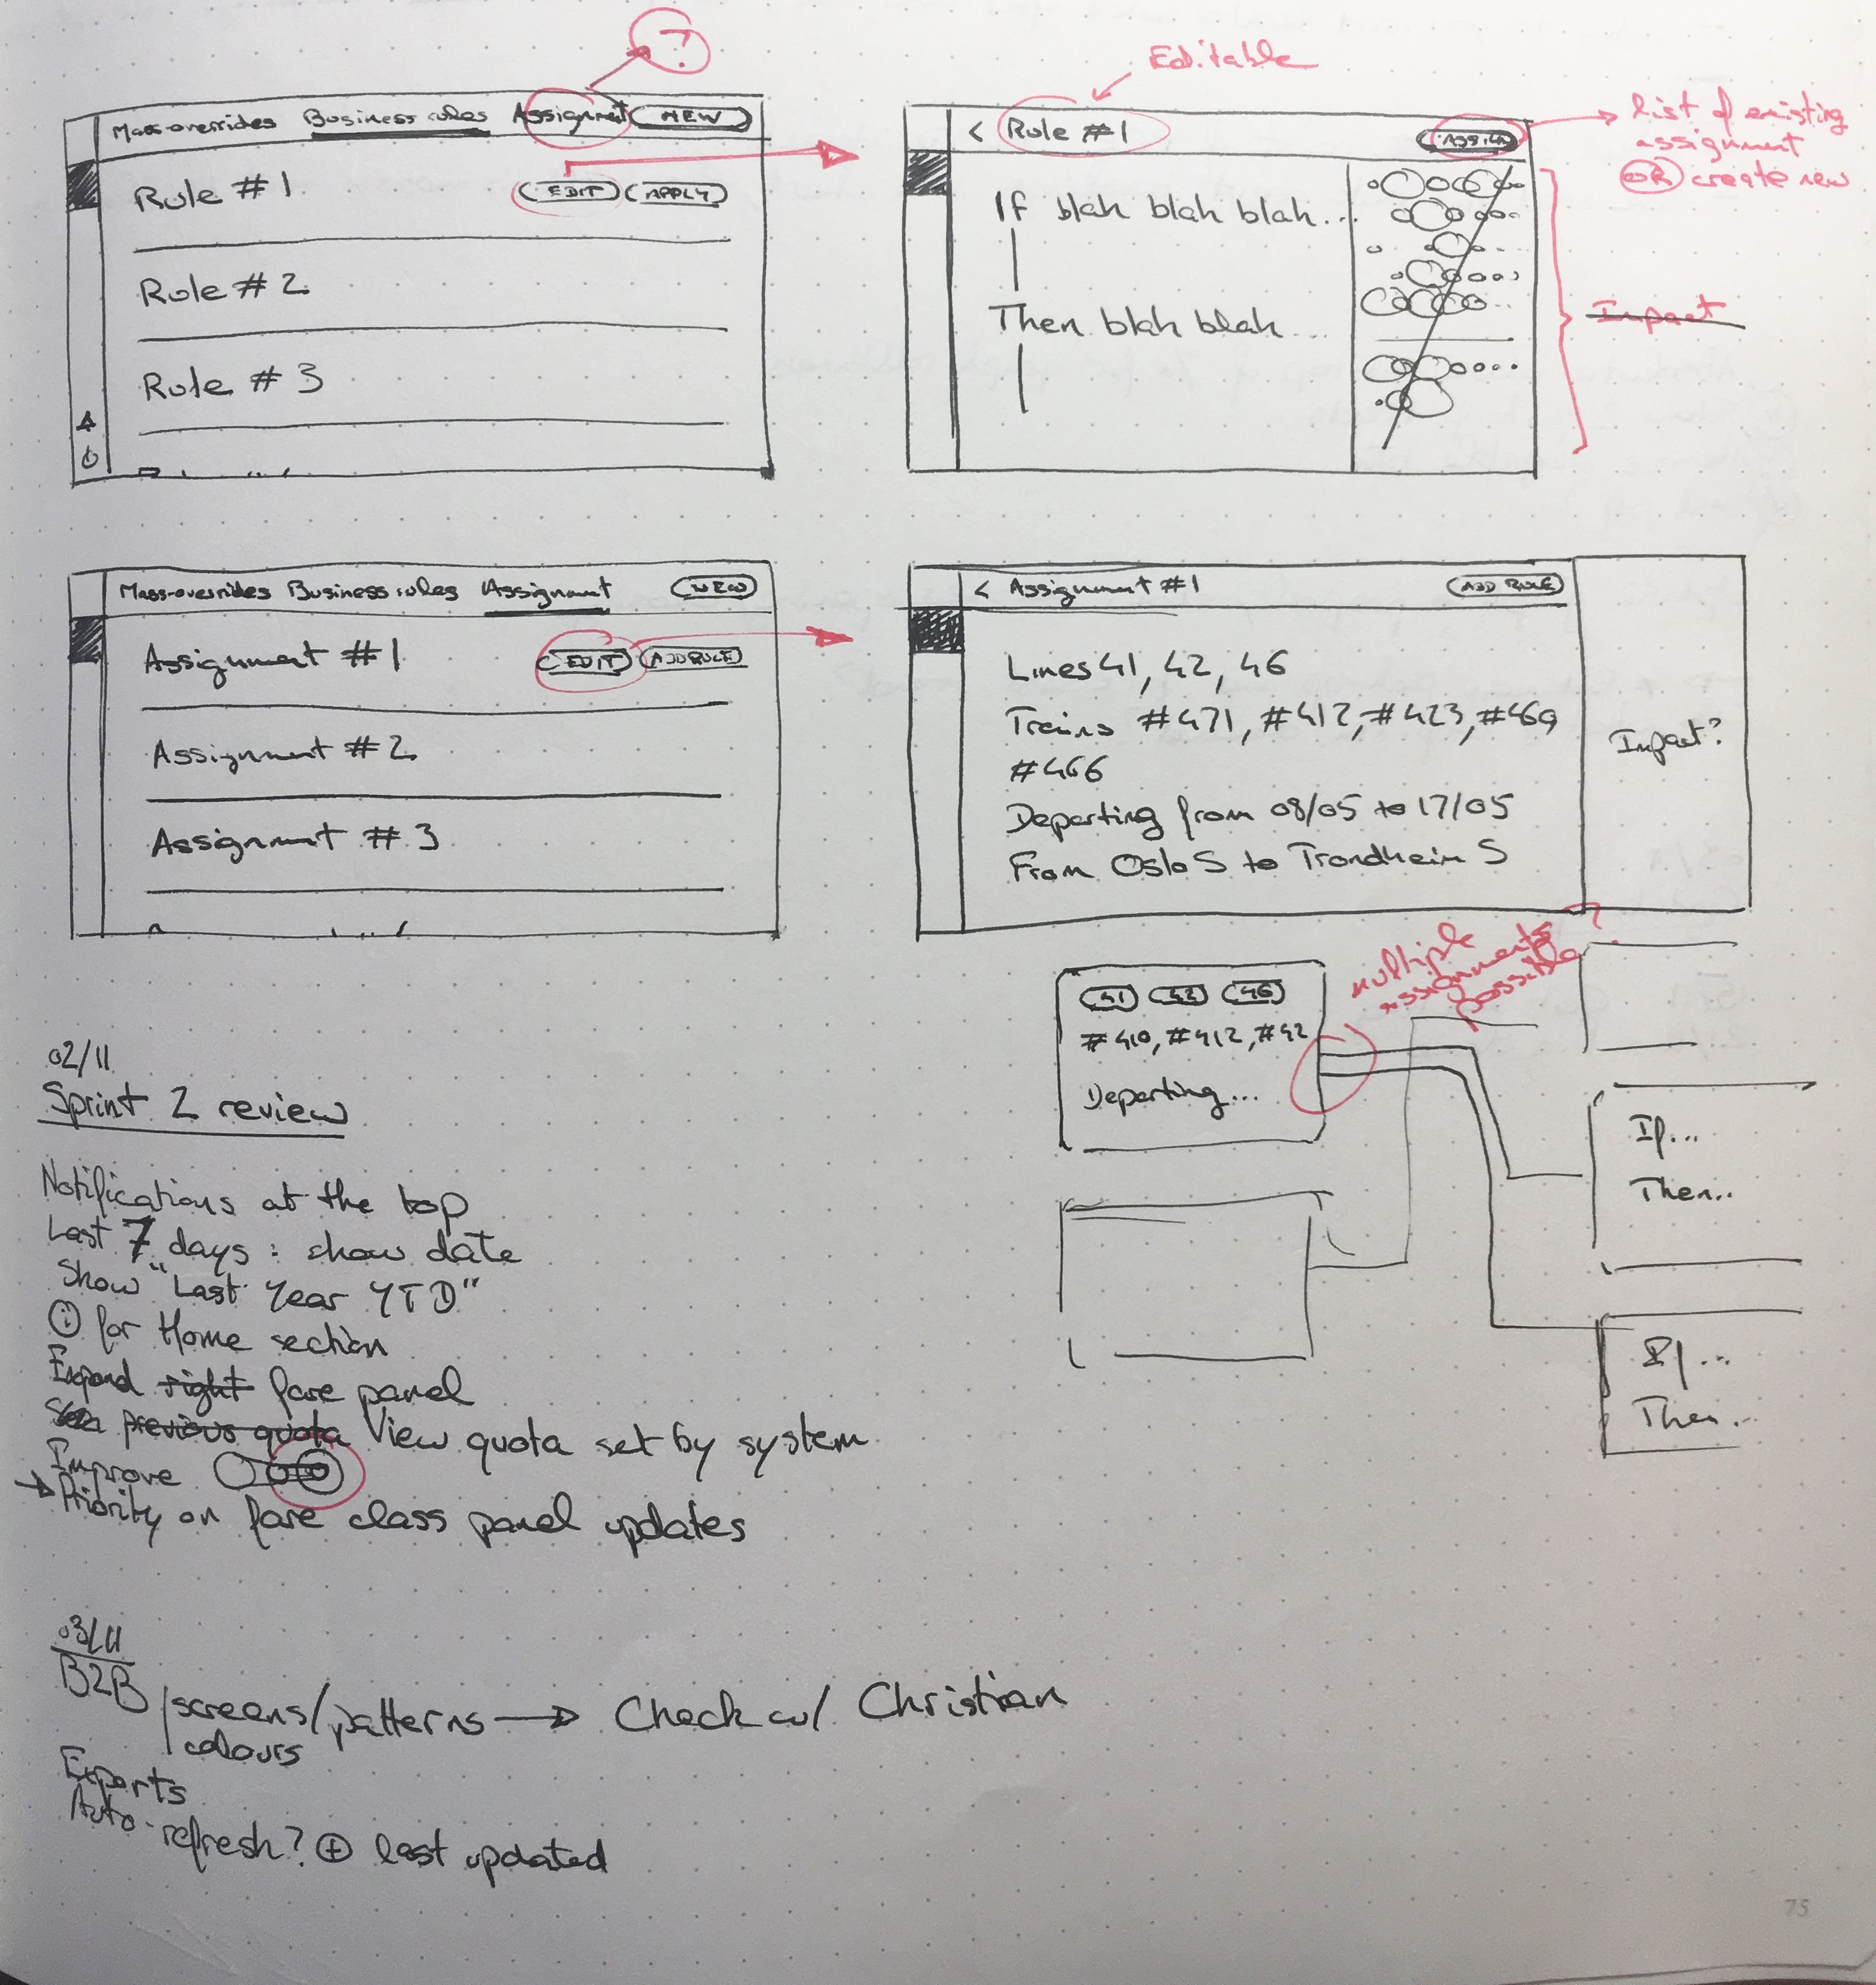 ?
Mass-overrides Business rules Assignment NEW
Rule #1 EDIT APPLY
Rule #2
Rule #3
Editable
< Rule #1 ASSIGN
list of existing
assignment
OR create new
If blah blah blah...
Then blah blah...
Impact
Mass-overrides Business rules Assignment NEW
Assignment #1 EDIT ADD RULE
Assignment #2
Assignment #3
< Assignment #1 ADD RULE
Lines 41, 42, 46
Trains #471, #412, #423, #469
#466
Departing from 08/05 to 17/05
From Oslo S to Trondheim S
Impact?
multiple
assignments
possible?
41 42 46
#410, #412, #42
Departing...
If...
Then..
If...
Then..
02/11
Sprint 2 review
Notifications at the top
Last 7 days: show date
Show "Last Year YTD"
i for Home section
Expand right fare panel
previous quota View quota set by system
Improve
→ Priority on fare class panel updates
03/11
B2B
/screens/patterns → Check w/ Christian
/colours
Exports
Auto-refresh? + last updated
75